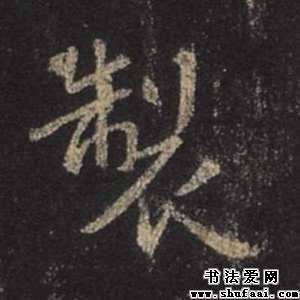 製
书法爱网
www.shufaai.com